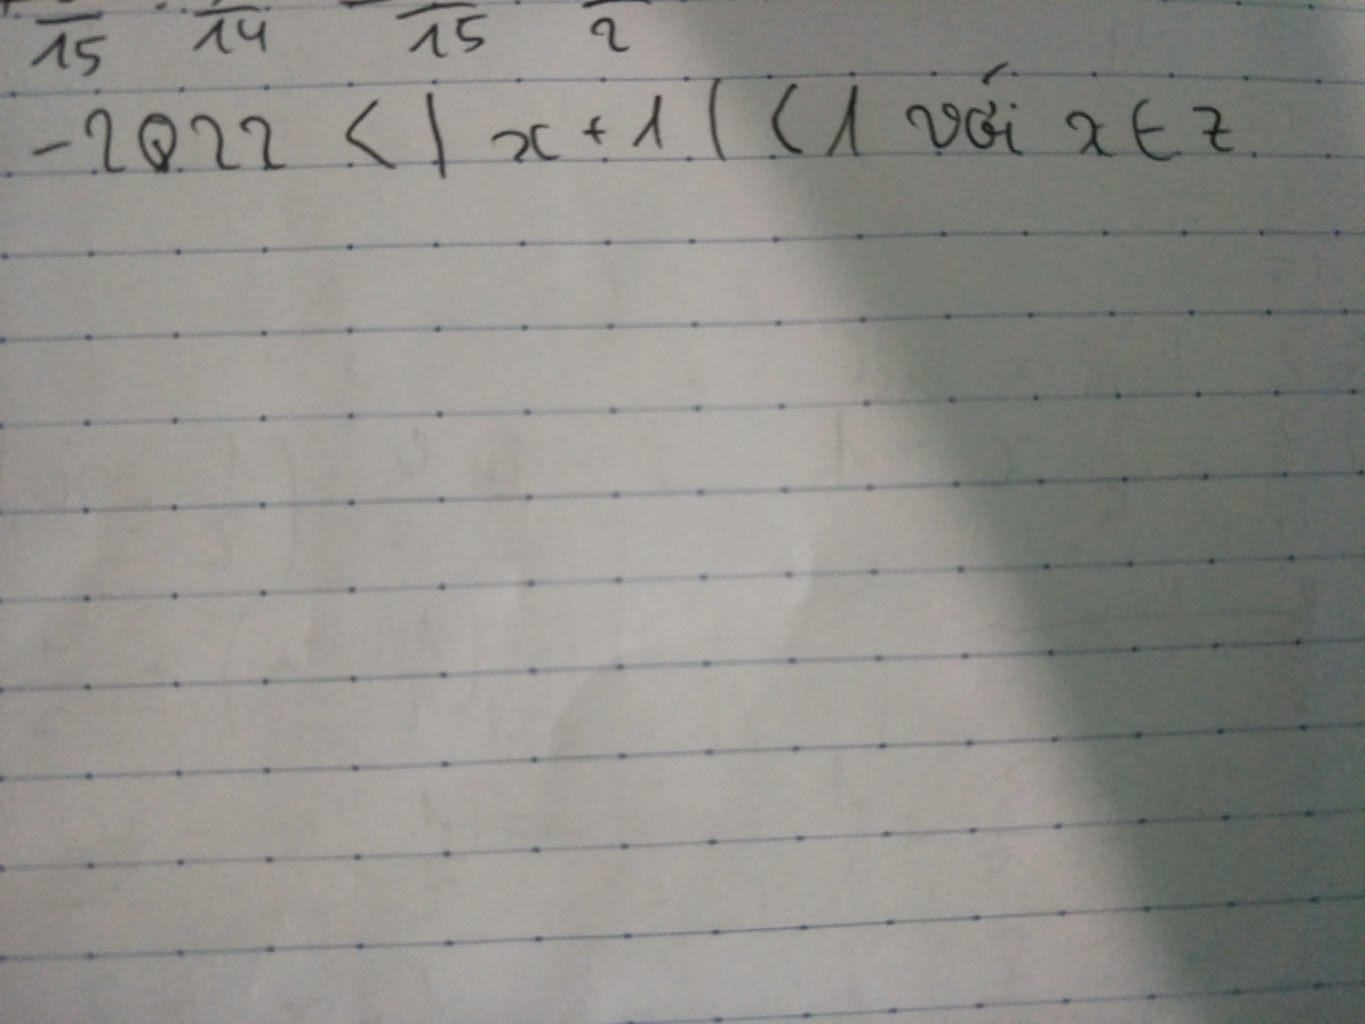 15 14 15 2
-2022 < | x + 1 | < 1 với x ∈ z